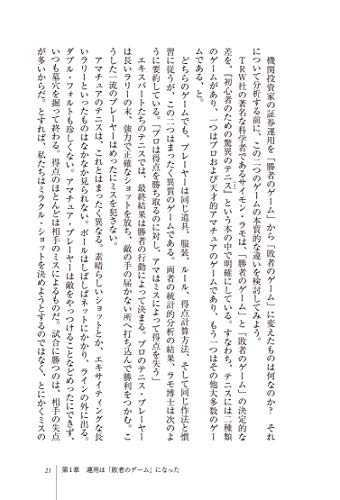 機関投資家の証券運用を「勝者のゲーム」から「敗者のゲーム」に変えたものは何なのか？　それ
について分析する前に、この二つのゲームの本質的な違いを検討してみよう。
ＴＲＷ社の著名な科学者であるサイモン・ラモは、「勝者のゲーム」と「敗者のゲーム」の決定的な
差を、『初心者のための驚異のテニス』という本の中で明確にしている。すなわち、テニスには二種類
のゲームがあり、一つはプロおよび天才的アマチュアのゲームであり、もう一つはその他大多数のゲー
ムである、と。
どちらのゲームでも、プレーヤーは同じ道具、服装、ルール、得点計算方法、そして同じ作法と慣
習に従うが、この二つはまったく異質のゲームである。両者の統計的分析の結果、ラモ博士は次のよ
うに要約している。「プロは得点を勝ち取るのに対し、アマはミスによって得点を失う」
エキスパートたちのテニスでは、最終結果は勝者の行動によって決まる。プロのテニス・プレーヤー
は長いラリーの末、強力で正確なショットを放ち、敵の手の届かない所へ打ち込んで勝利をつかむ。こ
うした一流のプレーヤーはめったにミスを犯さない。
アマチュアのテニスは、これとはまったく異なる。素晴らしいショットとか、エキサイティングな長
いラリーといったものはなかなか見られない。ボールはしばしばネットにかかり、ラインの外に出る。
ダブル・フォルトも珍しくない。アマチュア・プレーヤーは敵をやっつけることなどめったにできず、
いつも墓穴を掘って終わる。得点のほとんどは相手のミスによるものだ。試合に勝つのは、相手の失点
が多いからだ。とすれば、私たちはミラクル・ショットを決めようとするのではなく、とにかくミスの
21　第1章　運用は「敗者のゲーム」になった